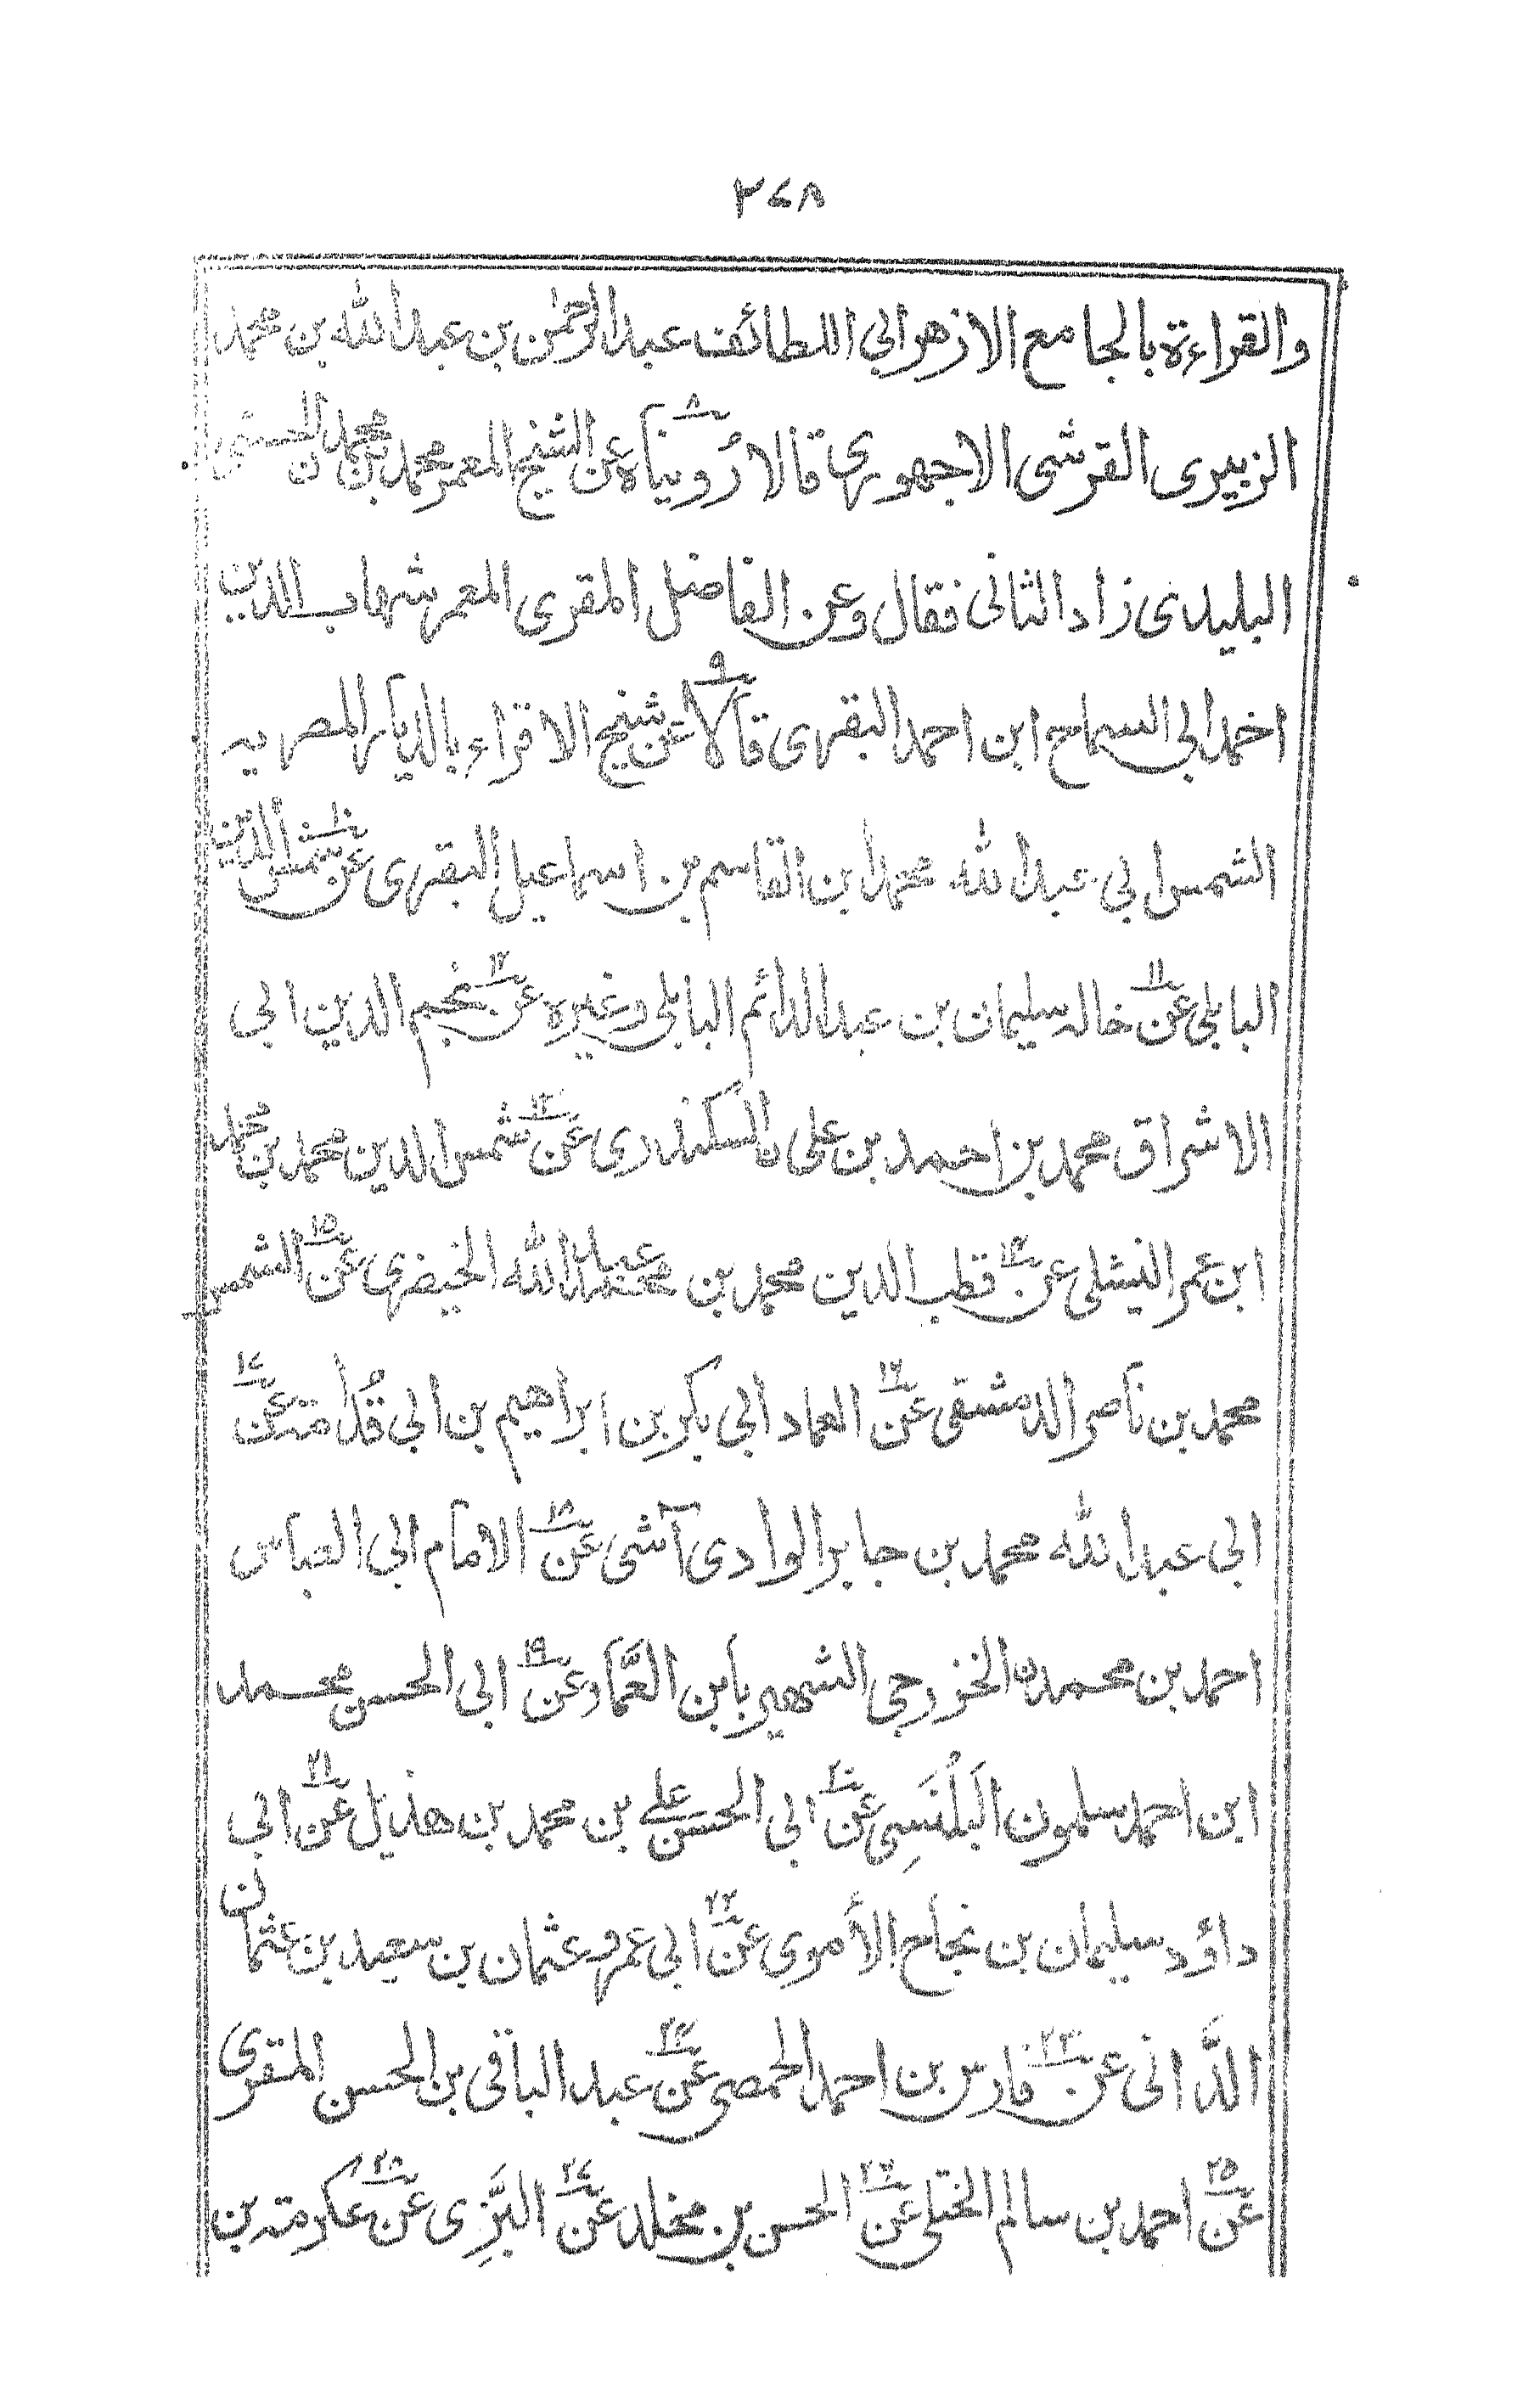 ٢٧٨
والقراءة بالجامع الازهر ابي اللطائف عبد الرحمٰن بن عبد الله بن محمد
الزبيرى القرشى الاجهورى قالا رُويناه عن ٨ الشيخ المعمر محمد بن محمد ن الحسنى
البليدى زاد الثانى فقال وعن الفاضل المقرى المعمر شهاب الدين
احمد ابي السماح ابن احمد البقرى قالا عن ٩ شيخ الاقراء بالديار المصريه
الشمس ابي عبد الله محمد ابن القاسم بن اسماعيل البقرى عن ١٠ شمس الدين
البابلى عن ١١ خاله سليمان بن عبد الدائم البابلى وغيره عن ١٢ نجم الدين ابي
الاشراق محمد بن احمد بن على ن السكندرى عن ١٣ شمس الدين محمد بن محمد
ابن عمر النيشلى عن ١٤ قطب الدين محمد بن محمد عبد الله الخيضرى عن ١٥ الشمس
محمد بن ناصر الدمشقى عن ١٦ العماد ابي بكر بن ابراهيم بن ابي قُدامة عن ١٧
ابي عبد الله محمد بن جابر الوادى آشى عن ١٨ الامام ابي العباس
احمد بن محمد ن الخزرجى الشهير بابن الغَمَّاد عن ١٩ ابي الحسن محمد
ابن احمد سلمون البَلَنْسِى عن ٢٠ ابي الحسن على بن محمد بن هذيل عن ٢١ ابي
داؤد سليمان بن نجاح الأموى عن ٢٢ ابي عمرو عثمان بن سعيد بن عثمان
الدَّانى عن ٢٣ فارس بن احمد الحمصى عن ٢٤ عبد الباقى بن الحسن المقرى
عن ٢٥ احمد بن سالم الختلى عن ٢٦ الحسن بن مخلد عن ٢٧ البَزِّى عن ٢٨ عكرمة بن